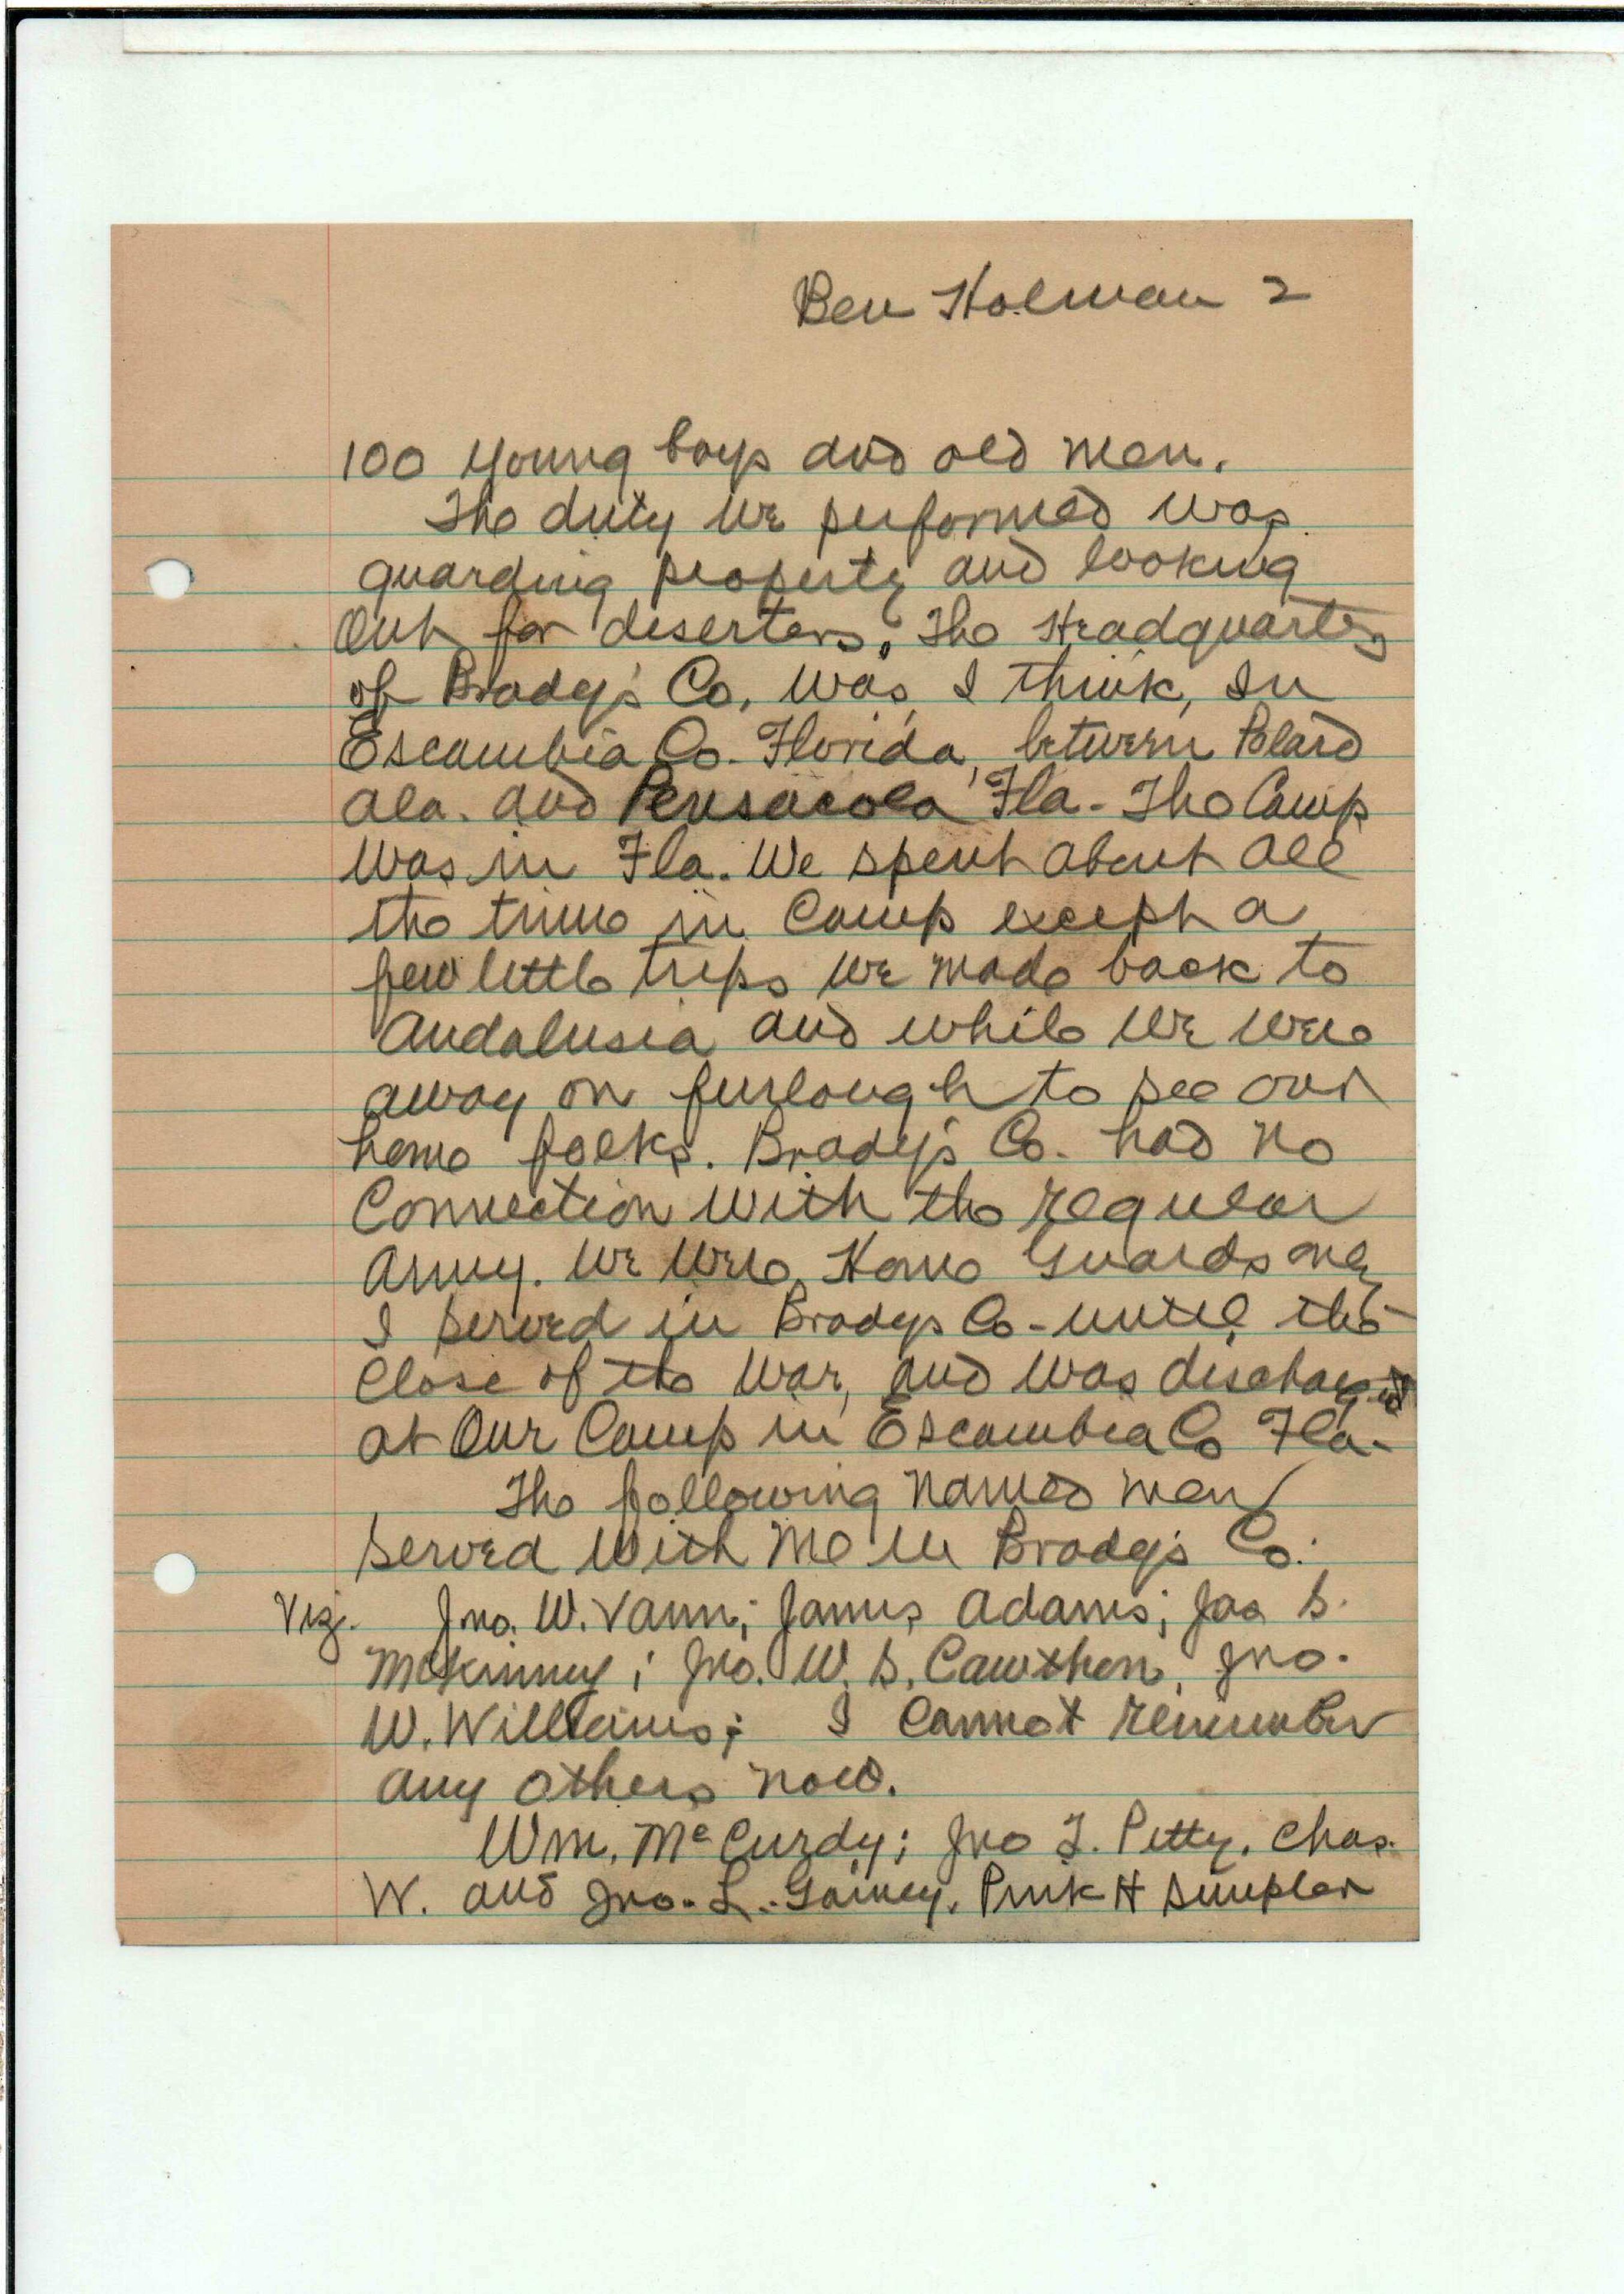 Ben Holman 2
100 young boys and old men.
The duty we performed was
guarding property and looking
Out for deserters. The Headquarters
of Brady's Co. was, I think, In
Escambia Co. Florida, between Polard
Ala. and Pensacola Fla. The Camp
Was in Fla. We spent about all
the time in Camp except a
few little trips we made back to
Andalusia and while we were
away on furlough to see our
home folks. Brady's Co. had no
Connection With the regular
Army. We were Home Guards only
I served in Bradys Co - until the
Close of the War, and was discharged
at Our Camp in Escambia Co Fla.
The following named men
served With Me in Brady's Co.:
Viz. Jno. W. Vann; James Adams; Jas S.
McKinney; Jno. W. S. Cawthon, Jno.
W. Williams; I Cannot remember
any others now.
Wm. McCurdy; Jno T. Petty, Chas.
W. and Jno. L. Gainey, Pink H Simpler